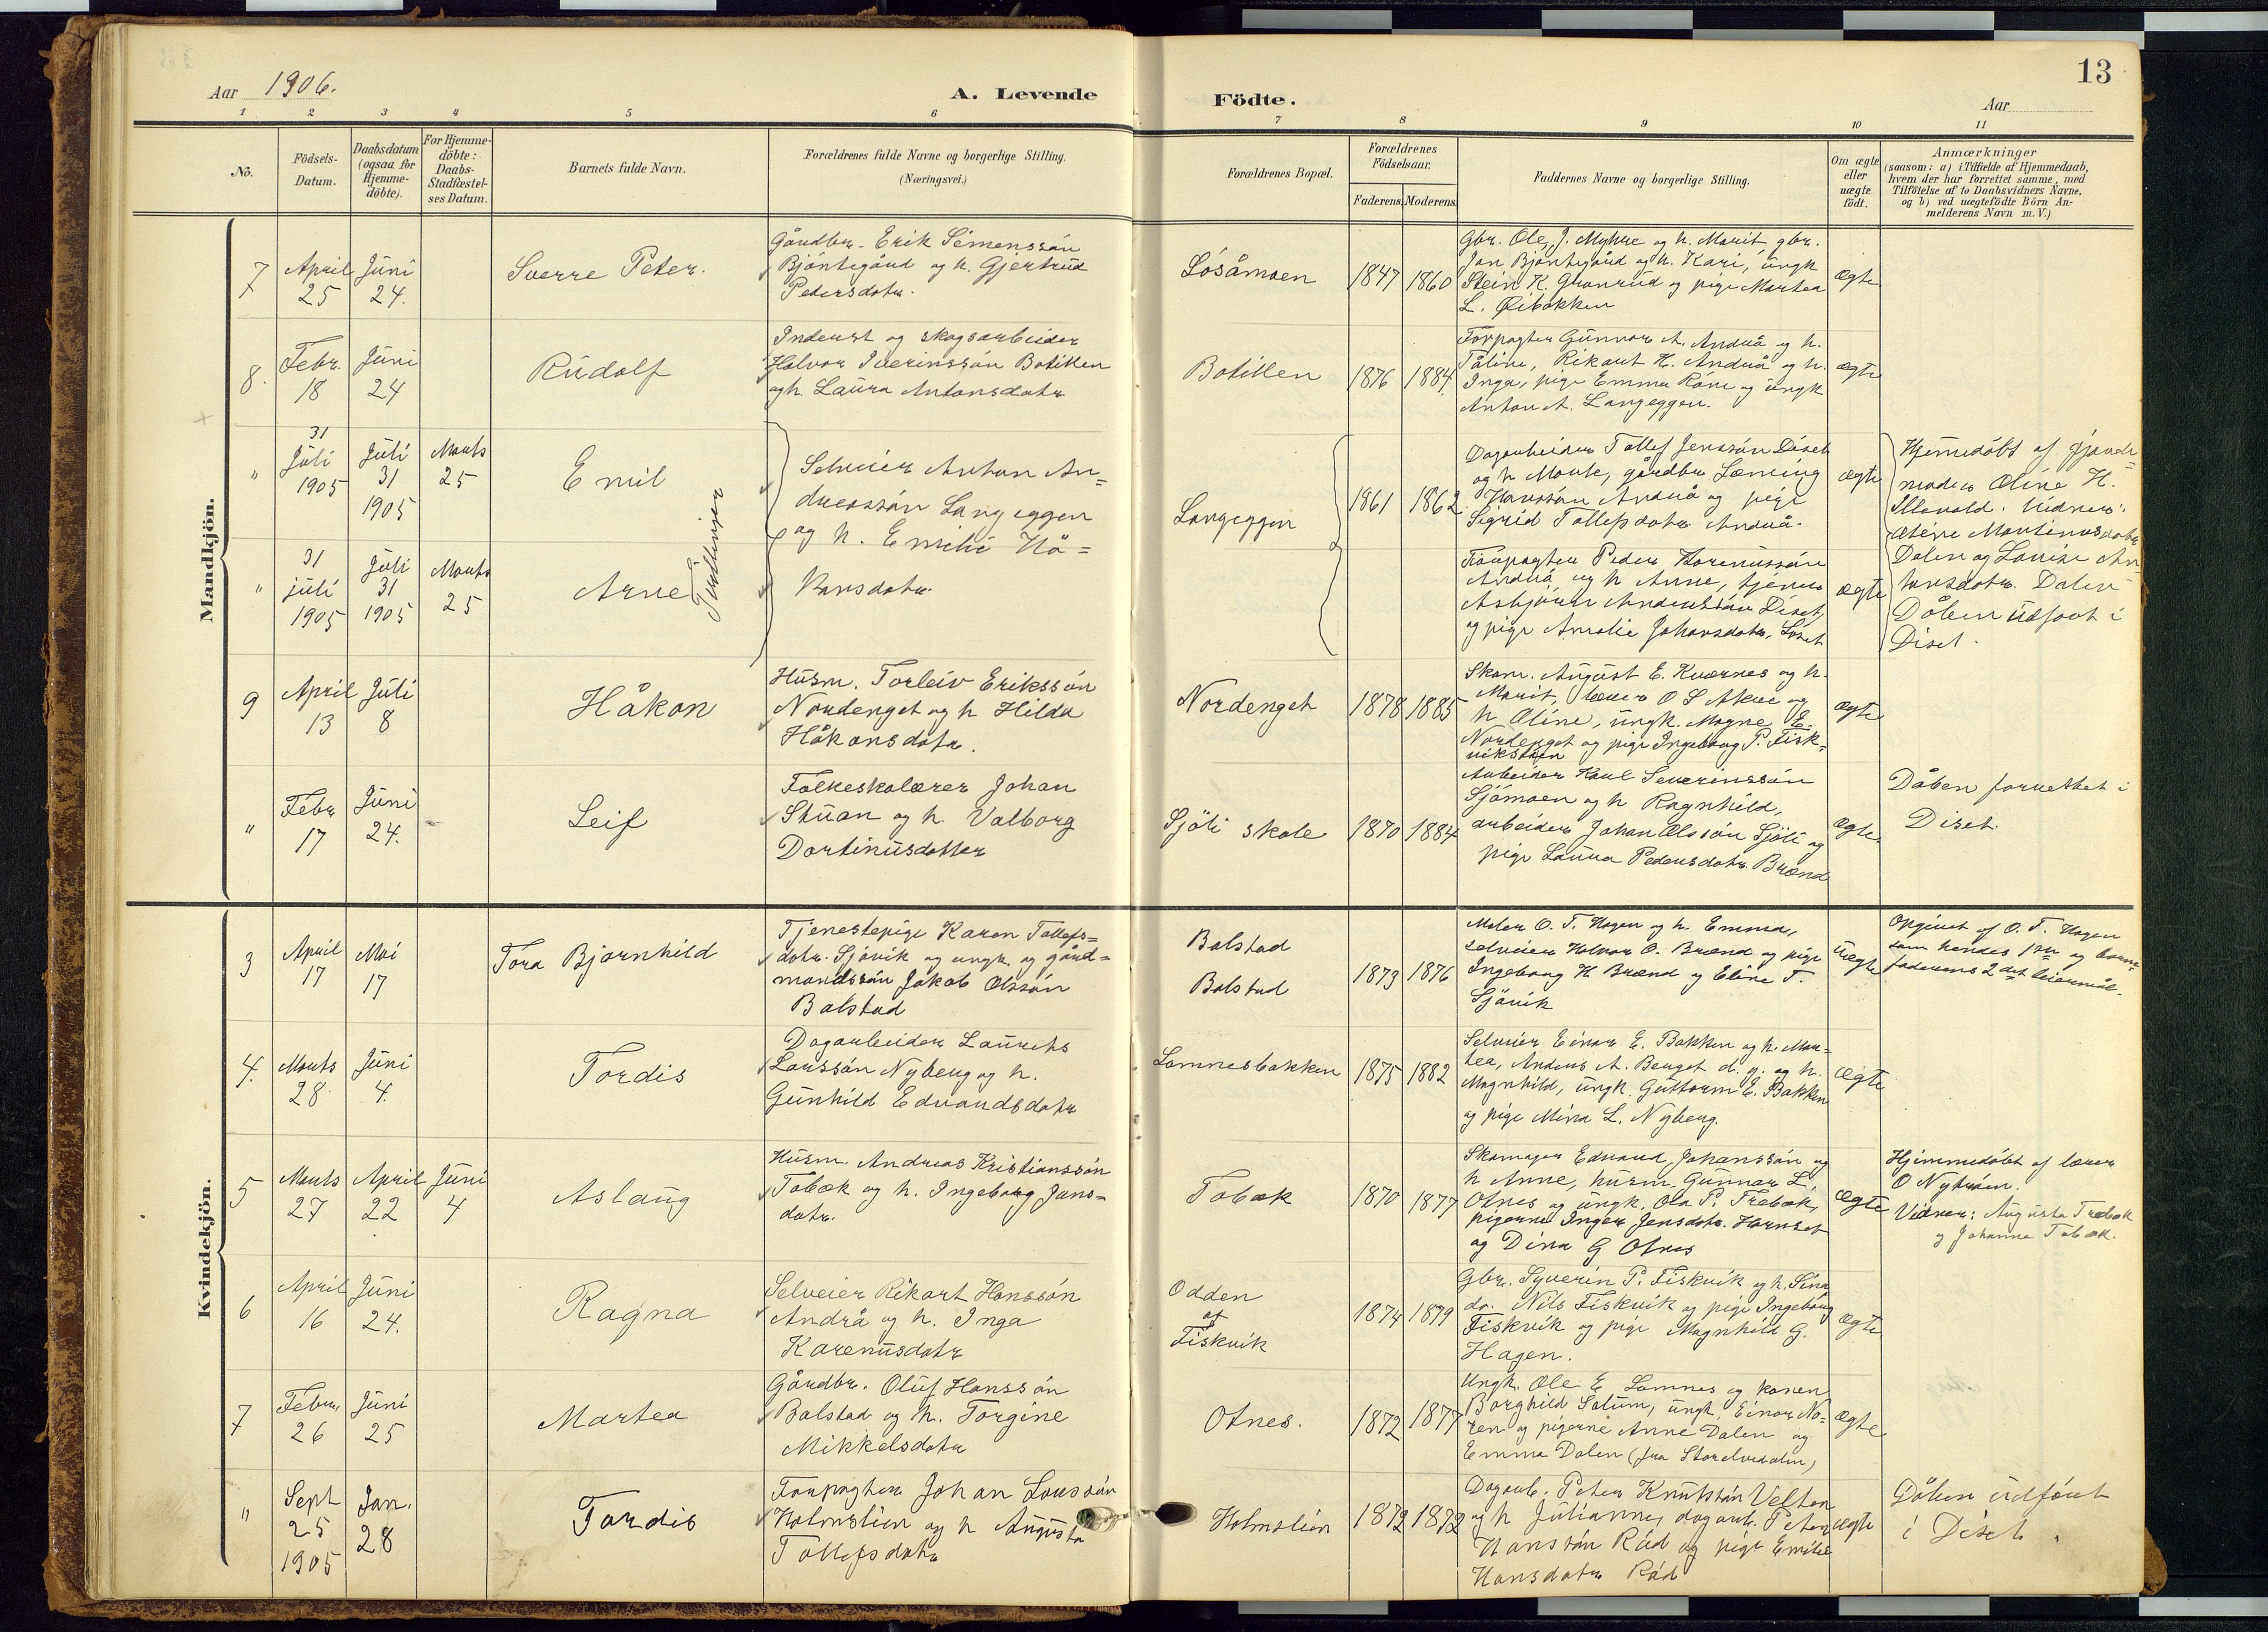 Aar 1906.
A. Levende
Födte.
13
Aar
1 2 3 4 5 6 7 8 9 10 11
No.
Födsels-
Datum.
Daabsdatum
(ogsaa for
Hjemme-
döbte).
For Hjemme-
döbte:
Daabs-
Stadfæstel-
ses Datum.
Barnets fulde Navn.
Forældrenes fulde Navne og borgerlige Stilling.
(Næringsvei.)
Forældrenes Bopæl.
Forældrenes
Födselsaar.
Faderens.
Moderens.
Faddernes Navne og borgerlige Stilling.
Om ægte
eller
uægte
födt.
Anmærkninger
(saasom: a) i Tilfælde af Hjemmedaab,
hvem der har forrettet samme, med
Tilföielse af to Daabsvidners Navne.
og b) ved uægtefödte Börn An-
melderens Navn m. V.)
Mandkjön.
7
April
25
Juni
24.
Sverre Peter.
Gårdbr. Erik Simenssön
Bjöntegård og h. Gjertrud
Pedersdotr.
Lösåmoen
1847
1860
Gbr. Ole J. Myhre og h. Marit, gbr.
Jon Bjöntegård og h. Kari, ungk
Stein K. Granrud og pige Martea
L. Öibakken
ægte
8.
Febr.
18
Juni
24
Rudolf
Inderst og skogsarbeider
Halvor Iverinssön Botillen
og h. Laura Antonsdotr
Botillen
1876
1884.
Forpagter Gunnar A. Andrå og h.
Tåline, Rikart H. Andrå og h.
Inga, pige Emma Röne og ungk
Anton A. Langeggen.
ægte
"
31
Juli
1905
Juli
31
1905
Marts
25
Emil
Selveier Anton An=
dreassön Langeggen
og h. Emilie Hå=
kansdotr.
Tvillinger
Langeggen
1861
1862
Dagarbeider Tollef Jenssön Diset
og h Marte, gårdbr Læming
Hanssön Andrå og pige
Sigrid Tollefsdotr Andrå.
ægte
Hjemmedöbt af gjorde=
moder Oline H.
Illevold. Vidner:
Oline Martinusdotr
Dalen og Lovise An
tonsdotr. Dalen
Dåben udfört i
Diset.
"
31
juli
1905
Juli
31
1905
Marts
25
Arne
Forpagter Peder Korenussön
Andrå og h Anne, tjener
Asbjörn Anderssön Diset,
og pige Amalie Johansdotr. Löset
ægte
9
April
13
Juli
8
Håkon
Husm. Torleiv Erikssön
Nordenget og h Hilda
Håkonsdotr.
Nordenget
1878
1885
Skom. August E. Kværnes og h.
Marit, lærer O S Akre og
h Oline, ungk. Magne E.
Nordenget og pige Ingeborg P. Fisk=
vikstöen
ægte
"
Febr
17
Juni
24.
Leif
Folkeskolærer Johan
Stuan og h. Valborg
Dortinusdotter
Sjöli skole
1870
1884
Arbeider Karl Severinssön
Sjömoen og h Ragnhild,
arbeider Johan Olssön Sjöli og
pige Laura Pedersdotr. Brænd
ægte.
Dåben forrettet i
Diset.
Kvindekjön.
3
April
17
Mai
17
Tora Bjørnhild
Tjenestepige Karen Tollefs=
dotr. Sjövik og ungk. og gård=
mandssön Jakob Olssön
Balstad
Balstad
Balstad
1873
1876
Maler O. T. Hagen og h. Emma,
selveier Halvor O. Brænd og pige
Ingeborg H. Brænd og Eline T.
Sjövik
uægte
Opgivet af O. T. Hagen
som hendes 1ste og barne=
faderens 2det leiermål.
4.
Marts
28.
Juni
4.
Tordis
Dagarbeider Laurits
Larssön Nyberg og h.
Gunhild Edvardsdotr
Lomnesbakken
1875
1882
Selveier Einar E. Bakken og h. Mar=
tea, Anders A. Berget d. y. og h.
Magnhild, ungk. Guttorm E. Bakken
og pige Mina L. Nyberg.
ægte
5
Marts
27
April
22
Juni
4
Aslaug
Husm. Andreas Kristianssön
Tobæk og h. Ingeborg Jans=
dotr.
Tobæk
1870
1877
Skomager Edvard Johanssön og
h Anne, husm. Gunnar L.
Otnes og ungk. Ola P. Træbæk,
pigerne Inger Jensdotr. Harnset
og Dina G Otnes
ægte
Hjemmedöbt af lærer
O Nytröen.
Vidner: Augusta Træbæk
og Johanna Tobæk.
6
April
16
Juni
24.
Ragna
Selveier Rikart Hanssön
Andrå og h. Inga
Karenusdotr
Odden
af
Fiskvik
1874
1879
Gbr. Syverin P. Fiskvik og h. Sina
do. Nils Fiskvik og pige Ingeborg
Fiskvik og pige Magnhild G.
Hagen.
ægte
7
Febru
26
Juni
25
Martea
Gårdbr. Oluf Hanssön
Balstad og h. Torgine
Mikkelsdotr
Otnes.
1872
1877
Ungk. Ole E Lomnes og konen
Borghild Solum, ungk. Einar No=
ren og pigerne Anne Dalen og
Emma Dalen (fra Storelvedalen)
ægte
"
Sept
25
1905
Jan.
28
Tordis
Forpagter Johan Larssön
Holmstien og h Augusta
Tollefsdotr
Holmstien
1872
1872
Dagarb. Peter Knutssön Velten
og h Julianne, dagarb. Peter
Hanssön Röd og pige Emilie
Hansdotr Röd
ægte
Dåben udfört
i Diset.